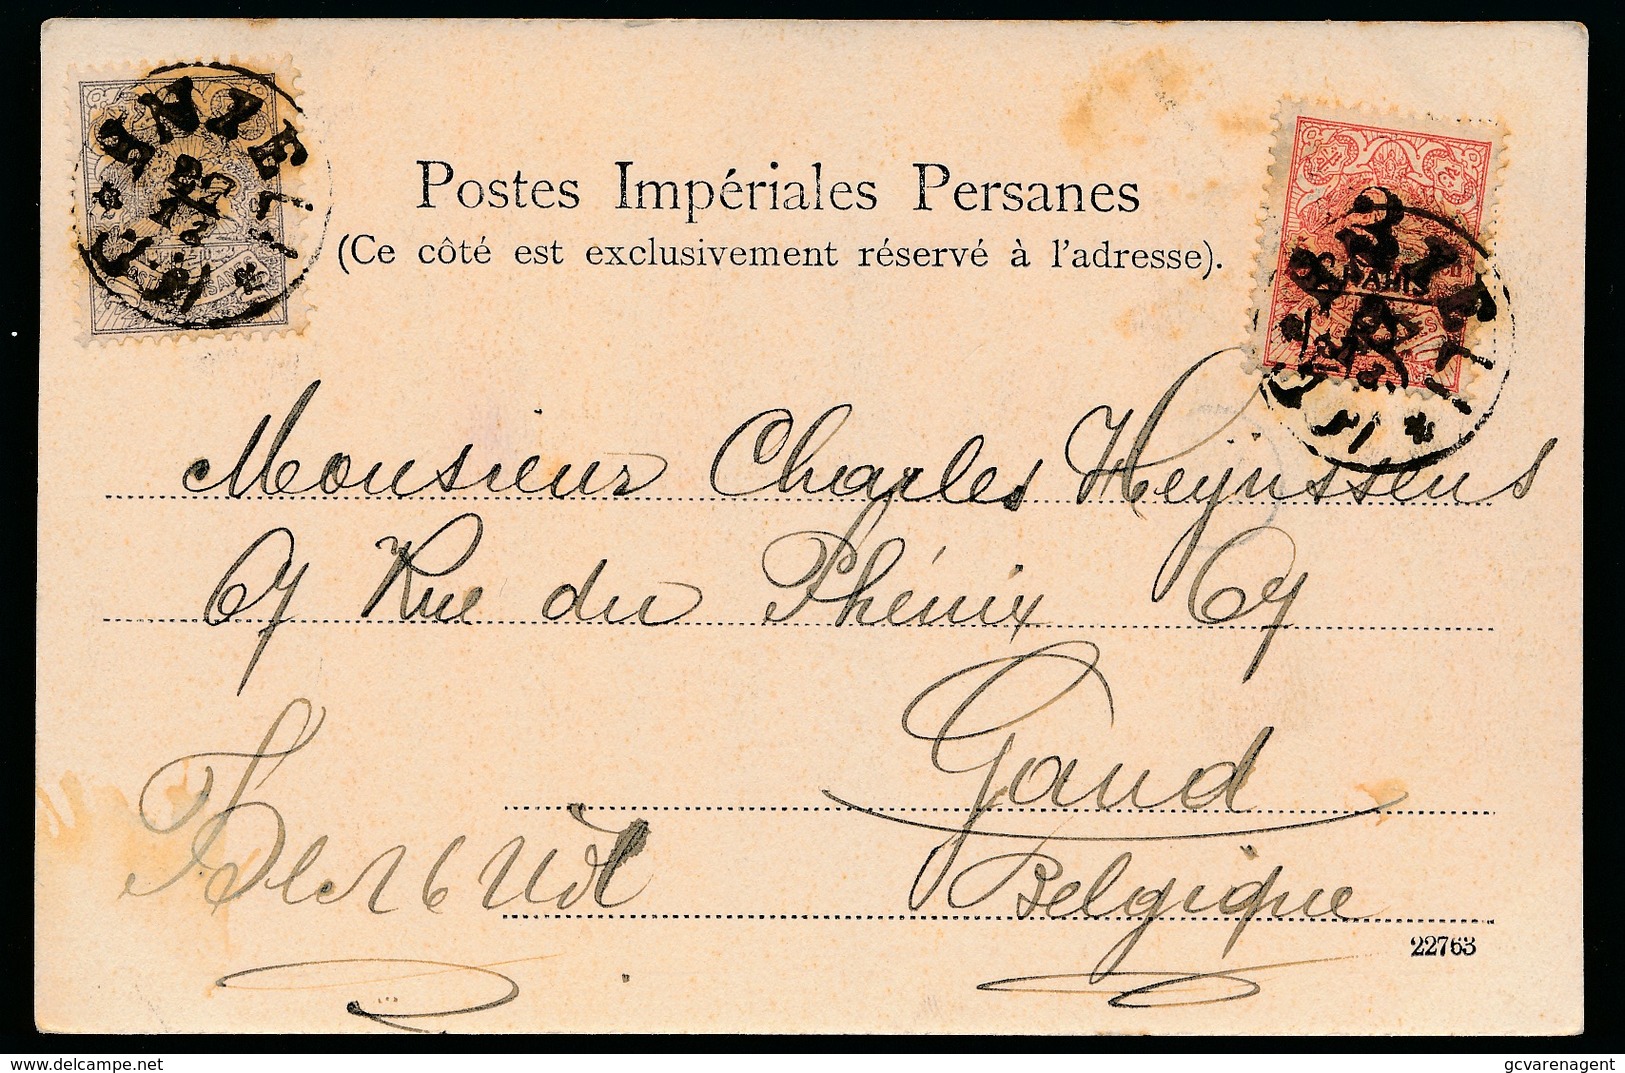 ENZELI
Postes Impériales Persanes
(Ce côté est exclusivement réservé à l'adresse).
2
CHAHIS
Monsieur Charles Heÿnssens
67 Rue du Phénix 67
Gand
Belgique
22763
delcampe.net
gcvarenagent